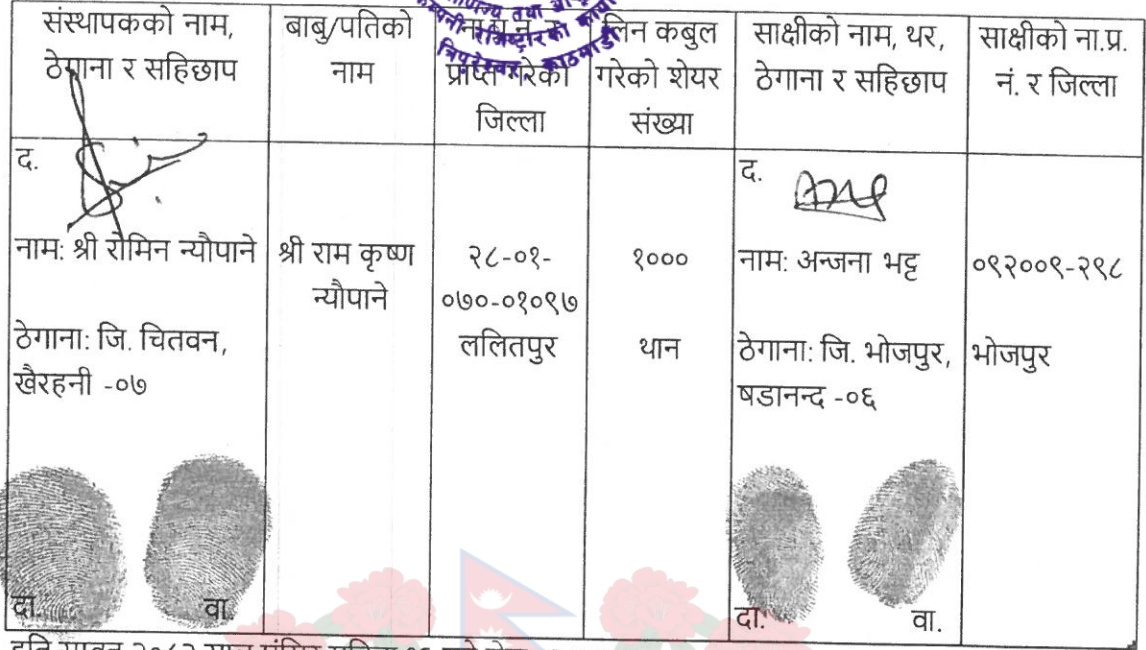 संस्थापकको नाम,
ठेगाना र सहिछाप
बाबु/पतिको
नाम
प्राप्त गरेको
जिल्ला
लिन कबुल
गरेको शेयर
संख्या
साक्षीको नाम, थर,
ठेगाना र सहिछाप
साक्षीको ना.प्र.
नं. र जिल्ला
द.
नाम: श्री रोमिन न्यौपाने
ठेगाना: जि. चितवन,
खैरहनी -०७
दा. वा.
श्री राम कृष्ण
न्यौपाने
२८-०१-
०७०-०१०९७
ललितपुर
१०००
थान
द.
नाम: अन्जना भट्ट
ठेगाना: जि. भोजपुर,
षडानन्द -०६
दा. वा.
०९२००९-२९८
भोजपुर